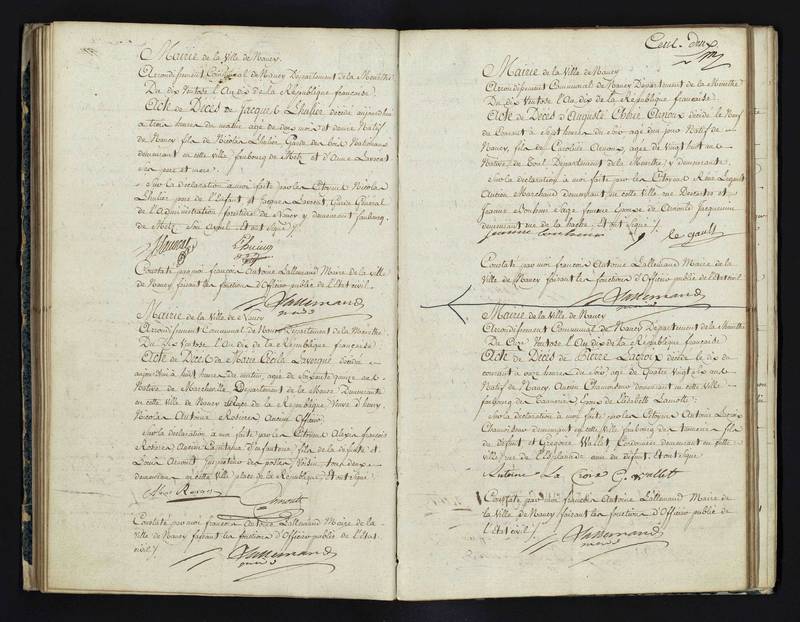 Mairie de la Ville de Nancy
Arrondissement Communal de Nancy Département de la Meurthe
Du dix Ventose l'An dix de la République française
Acte de Décès de Jacques Lhulier décédé aujourdhui
a trois heures du matin agé de dix mois et demi Natif
de Nancy fils de Nicolas Lhulier Garde des bois Nationaux
demeurant en cette ville faubourg de Metz et d'Anne Laurent
ses pere et mere
Sur la declaration a moi faite par les Citoyens Nicolas
Lhulier pere de l'Enfant et Jacques Laurent Garde Général
de l'Administration forestiere de Nancy y demeurant faubourg
de Metz Son ayeul Et ont signé
Laurent Lhulier
Constaté par moi françois Antoine Lallemand Maire de la ville
de Nancy faisant les fonctions d'Officier public de l'état civil
Lallemand
maire
Mairie de la Ville de Nancy
Arrondissement Communal de Nancy Département de la Meurthe
Du dix Ventose l'An dix de la République française
Acte de Décès de Marie Cécile Lavergne décédée
aujourdhui a huit heures du matin, agée de soixante quinze ans
Native de Marcheville Département de la Meuse Demeurante
en cette ville place de la République Veuve d'henry
Nicolas Antoine Rosieres Ancien Officier
Sur la declaration a moi faite par les Citoyens Alexis françois
Rosieres Ancien Capitaine d'infanterie fils de la defunte et
Louis Arnoult Inspecteur des postes Voisin tous deux
demeurans en cette ville place de la République Et ont signé
Constaté par moi françois Antoine Lallemand Maire de la
ville de Nancy faisant les fonctions d'Officier public de l'état
civil
Lallemand
maire
Cent-deux
Mairie de la Ville de Nancy
Arrondissement Communal de Nancy Département de la Meurthe
Du dix Ventose l'An dix de la République française
Acte de Décès d'Auguste Arnoux décédé le Neuf
du Courant a Sept heures du soir agé d'un jour Natif de
Nancy, fils de Caroline Arnoux, agée de vingt huit ans
Native de Toul Departement de la Meurthe y demeurante
Sur la declaration a moi faite par les Citoyens Legault
Ancien Marchand demeurant en cette ville rue Descartes et
Jeanne Sage femme Epouse de Jacquemin
demeurant rue de la hache Et ont signé
jeanne le gault
Constaté par moi françois Antoine Lallemand Maire de la
ville de Nancy faisant les fonctions d'Officier public de l'état civil
Lallemand
maire
Mairie de la Ville de Nancy
Arrondissement Communal de Nancy Département de la Meurthe
Du Onze Ventose l'An dix de la République française
Acte de Décès de Pierre Lacroix décédé le dix du
courant a onze heures du soir agé de Quatre vingt ans
Natif de Nancy Ancien Chamoiseur demeurant en cette Ville
faubourg des Tanneries Epoux de Elisabeth Lamotte
Sur la declaration a moi faite par les Citoyens Antoine Lacroix
Chamoiseur demeurant en cette ville faubourg des tanneries fils
du défunt et Grégoire Wallet Cordonnier demeurant en cette
ville rue de l'Esplanade ami du défunt Et ont signé
Antoine La Croix G. Wallet
Constaté par moi françois Antoine Lallemand Maire de
la ville de Nancy faisant les fonctions d'Officier public de
l'état civil
Lallemand
maire